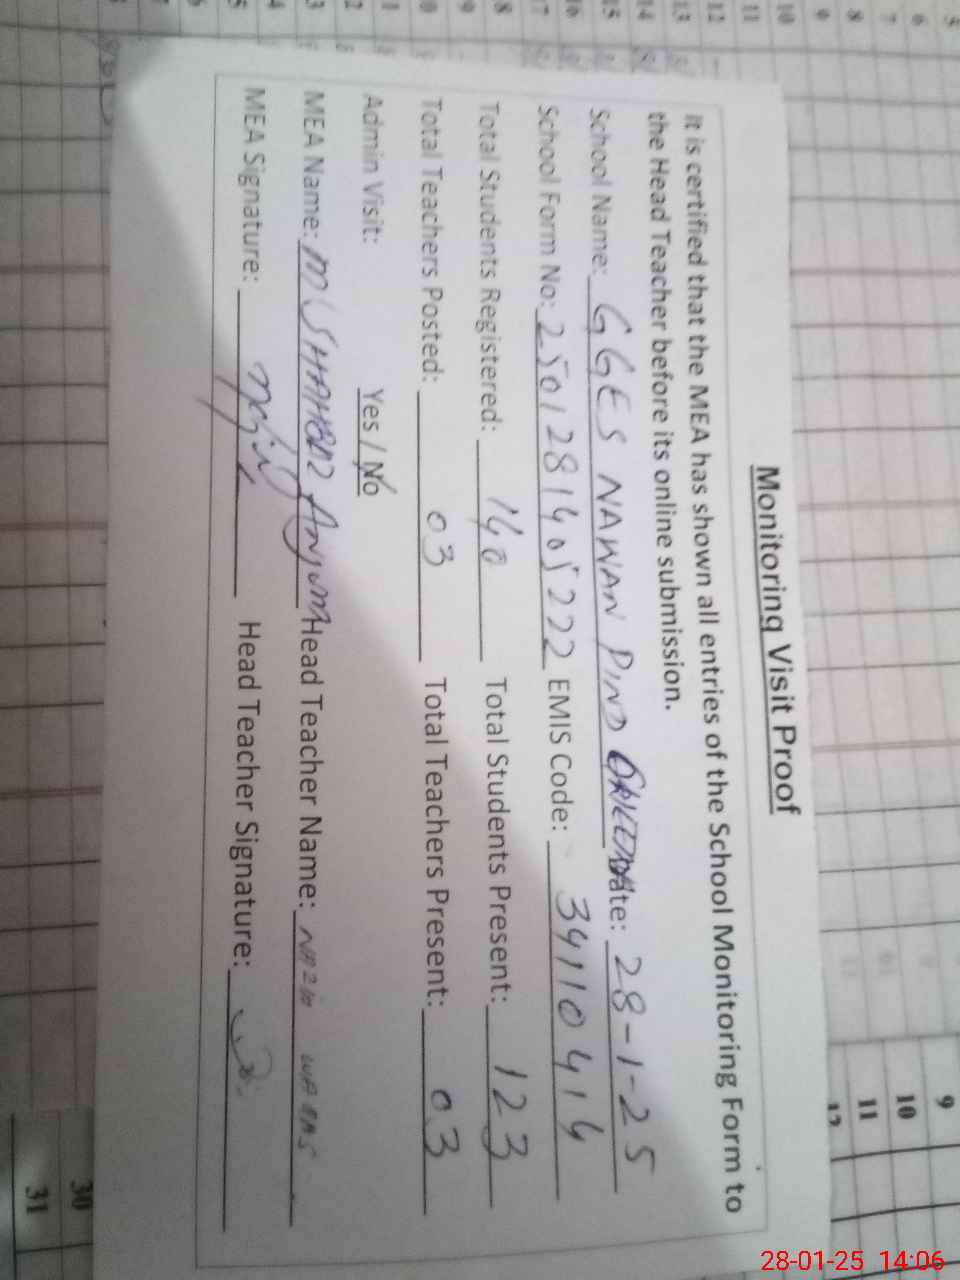 Monitoring Visit Proof
It is certified that the MEA has shown all entries of the School Monitoring Form to
the Head Teacher before its online submission.
School Name: GGES NAWAN PIND Date: 28-1-25
School Form No: 2501281405222 EMIS Code: 34110414
Total Students Registered: 140 Total Students Present: 123
Total Teachers Posted: 03 Total Teachers Present: 03
Admin Visit: Yes / No
MEA Name: M SHAHBAZ Anjum Head Teacher Name:
MEA Signature: Head Teacher Signature:
5
6
7
8
9
10
11
12
13
14
15
16
17
8
9
10
11
12
30
31
28-01-25 14:06